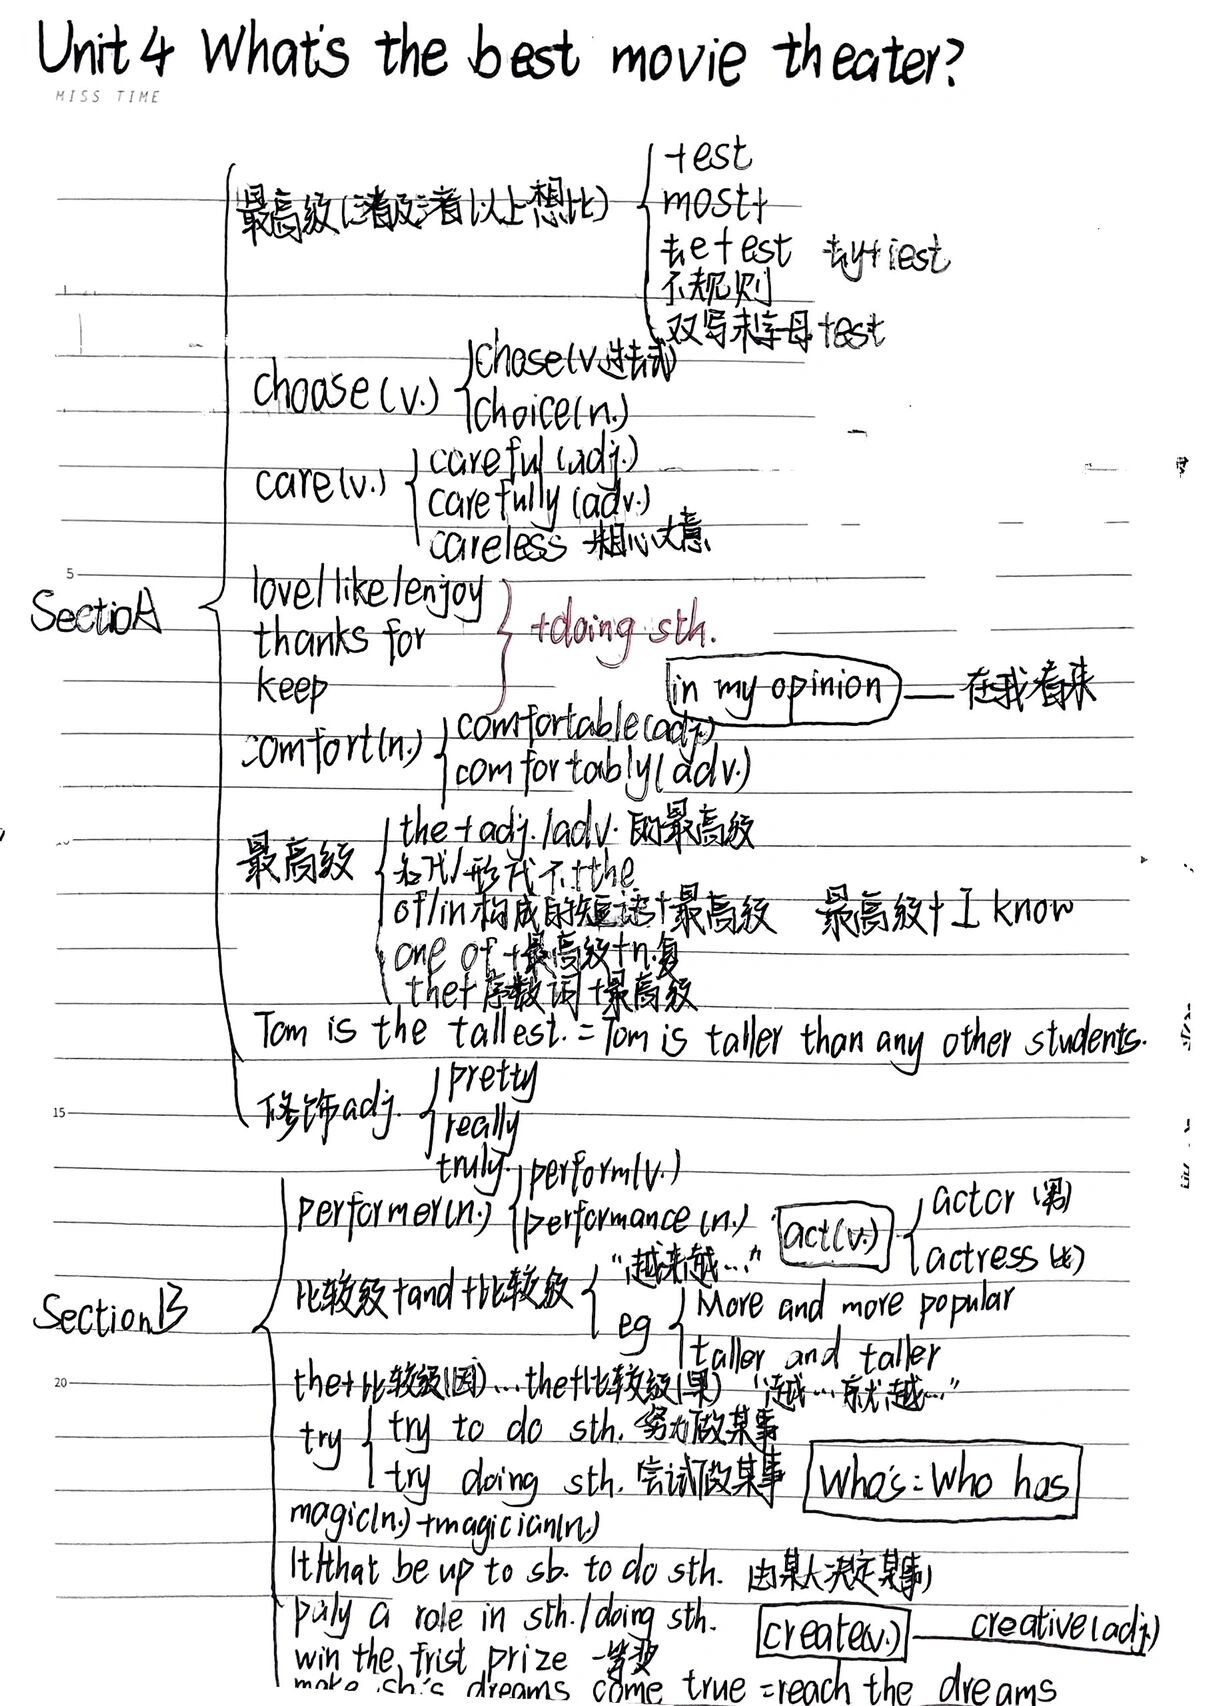 Unit 4 What's the best movie theater?
MISS TIME
+est
most+
最高级(三者及三者以上想比)
去e+est 去y+iest
不规则
双写末字母+est
chose(v.过去式)
choose(v.)
choice(n.)
careful(adj.)
care(v.)
carefully(adv.)
careless 粗心大意
5
love/like/enjoy
SectioA
thanks for +doing sth.
keep in my opinion — 在我看来
comfortable(adj.)
comfort(n.)
comfortably(adv.)
the+adj./adv.的最高级
最高级
形式不+the
of/in构成的短语+最高级 最高级+I know
one of +最高级+n.复
the+序数词+最高级
Tom is the tallest. = Tom is taller than any other students.
pretty
修饰adj.
15
really
truly.
perform(v.)
performer(n.)
performance(n.) act(v.) actor(男)
actress(女)
"越来越…"
比较级+and+比较级
More and more popular
SectionB
eg
taller and taller
20
the+比较级(因)…the+比较级(果) "越…就越…"
try to do sth. 努力做某事
try
try doing sth. 尝试做某事 Who's = Who has
magic(n.)→magician(n.)
It/that be up to sb. to do sth. (由某人决定某事)
paly a role in sth./doing sth.
create(v.) — creative(adj.)
win the frist prize 一等奖
make sb's dreams come true =reach the dreams